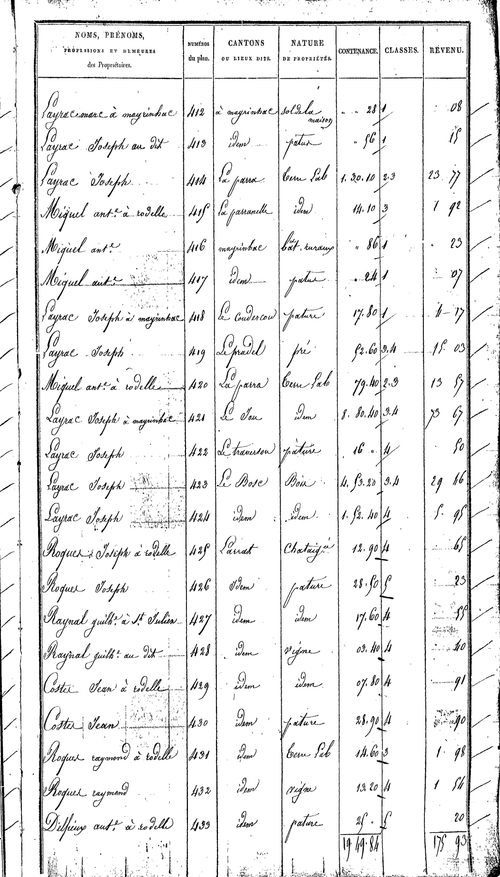 NOMS, PRÉNOMS, PROFESSIONS ET DEMEURES des Propriétaires. NUMÉROS du plan. CANTONS OU LIEUX DITS. NATURE DE PROPRIÉTÉS. CONTENANCE. CLASSES. REVENU.
Layrac marc à mayrinhac 412 à mayrinhac sol de la maison " " 28 1 " 08
Layrac Joseph au dit 413 idem patus " 56 1 15
Layrac Joseph 414 La parra Terre Lab 1. 30. 10 2.3 23 77
Miquel ant.e à rodelle 415 La parranelle idem 14. 10 3 1 92
Miquel ant.e 416 mayrinhac bât. ruraux " 86 1 " 23
Miquel ant.e 417 idem patus " 24 1 " 07
Layrac Joseph à mayrinhac 418 Le Coudercou pature 17. 80 1 4 17
Layrac Joseph 419 Le pradel pré 52. 60 3.4 15 03
Miquel ant.e à rodelle 420 La parra Terre Lab 79. 40 2.3 13 57
Layrac Joseph à mayrinhac 421 Le idem 8. 80. 40 3.4 73 67
Layrac Joseph 422 Le traverson pâture 16 " 4 50
Layrac Joseph 423 Le Bosc Bois 4. 53. 20 3.4 29 46
Layrac Joseph 424 idem idem 1. 52. 40 4 5. 95
Roques Joseph à rodelle 425 Larrat Chataig.e 12. 90 4 65
Roques Joseph 426 Idem pature 28. 50 5 23
Raynal guilh.e à St Julien 427 idem idem 17. 60 4 55
Raynal guilh.e au dit 428 idem vigne 03. 40 4 40
Costes Jean à rodelle 429 idem idem 07. 80 4 91
Costes Jean 430 idem pature 28. 90 4 90
Roques raymond à rodelle 431 idem Terre Lab 14. 60 3 1 98
Roques raymond 432 idem vigne 13 20 4 1 54
Delpieux ant.e à rodelle 433 idem pature 25 " 5 20
19 49. 84 175 93